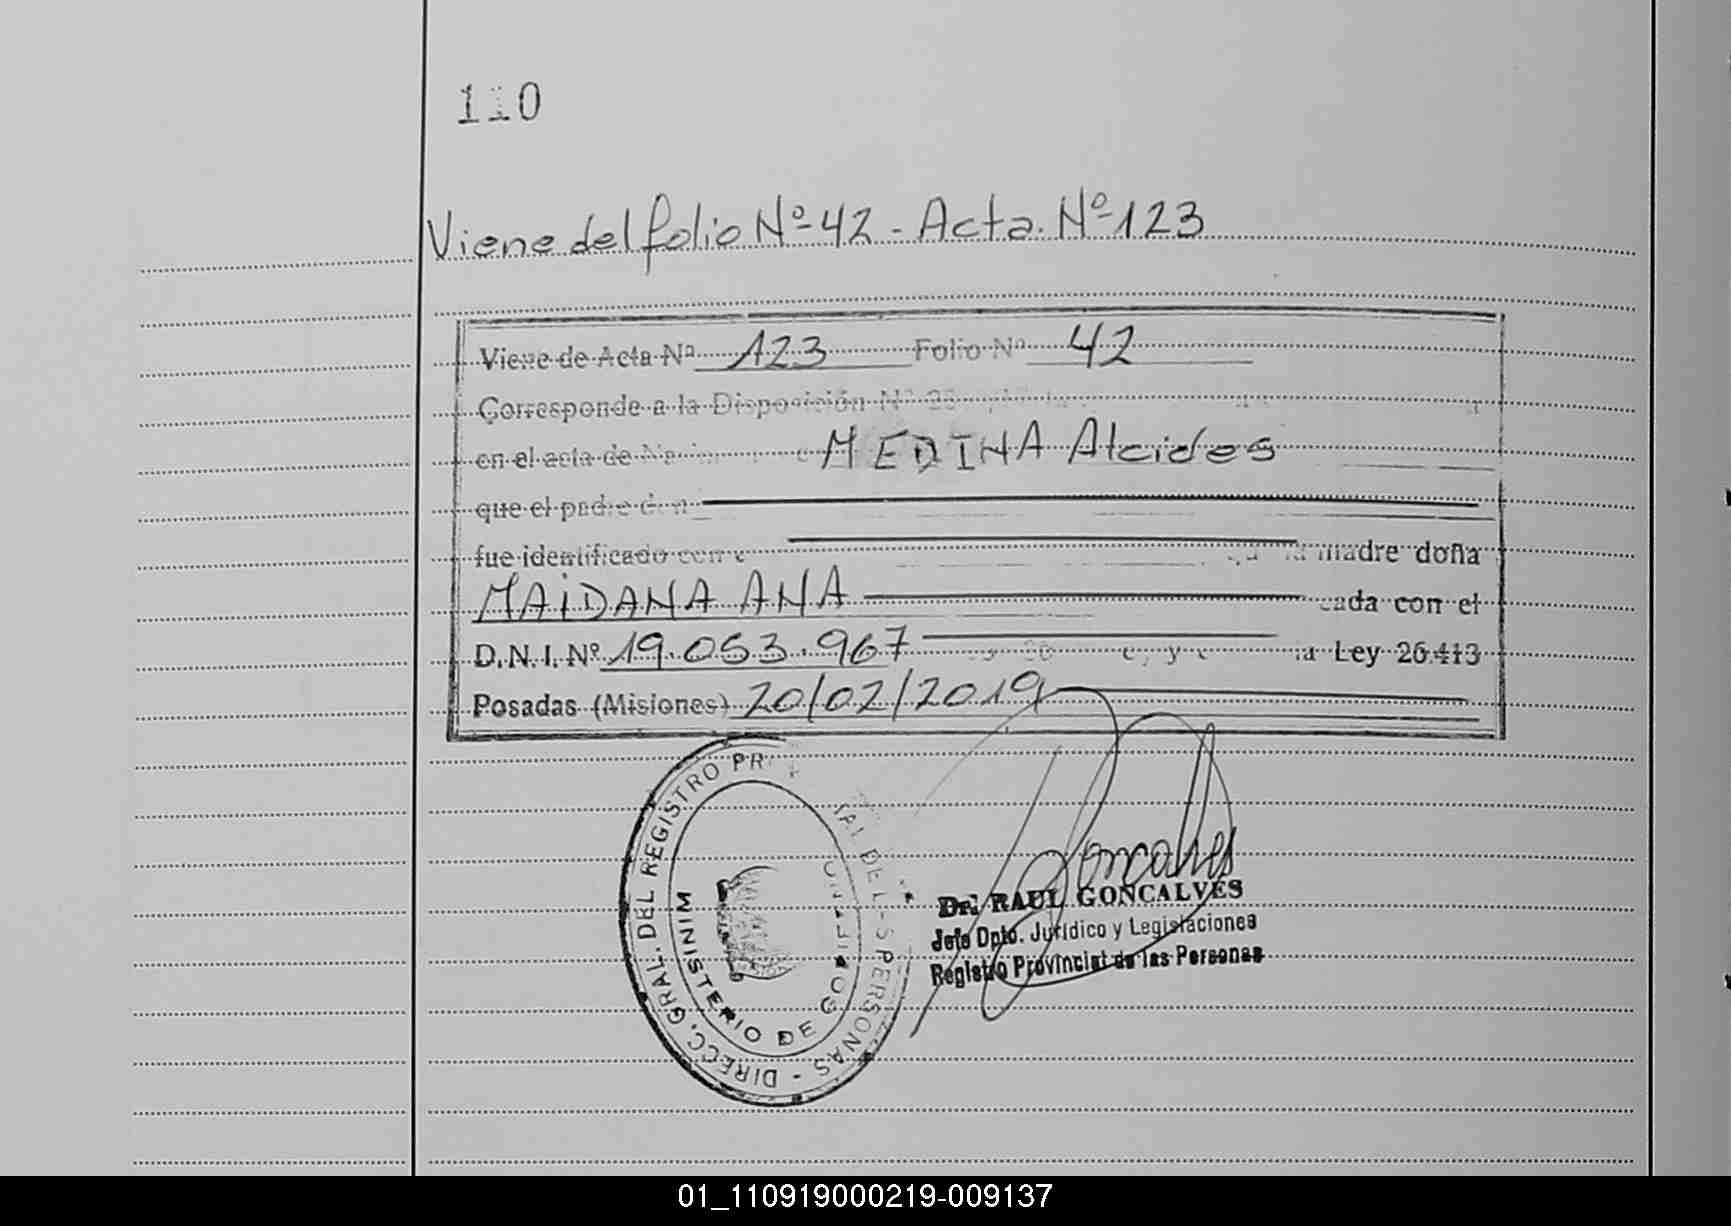 110
Viene del folio Nº 42 - Acta Nº 123
Viene de Acta Nº 123 Folio Nº 42
Corresponde a la Disposición Nº
en el acta de MEDINA Alcides
que el padre don
fue identificado con la madre doña
MAIDANA ANA cada con el
D.N.I. Nº 19.053.967 la Ley 26.413
Posadas (Misiones) 20/02/2019
DIRECC. GRAL. DEL REGISTRO DEL PERSONAS -
MINISTERIO DE
Goncalves
Dr. RAUL GONCALVES
Jefe Dpto. Jurídico y Legislaciones
Registro Provincial de las Personas
01_110919000219-009137